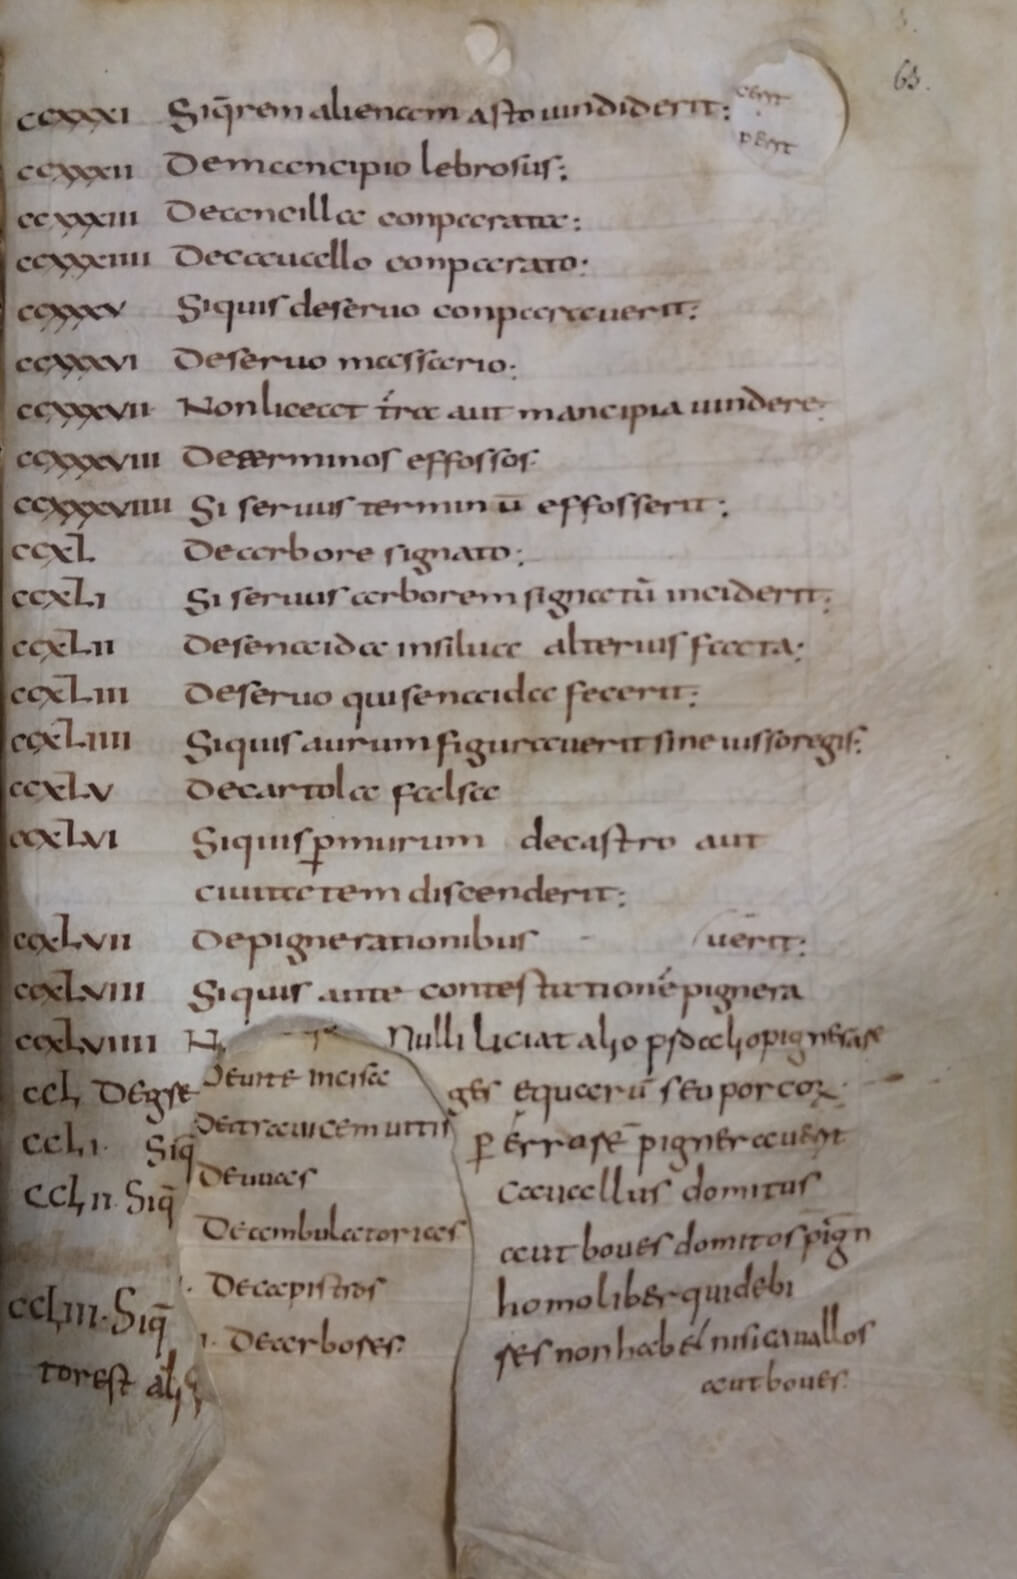 63.
CCXXXI Siq̄ rem alienam asto uindiderit:
CCXXXII De mancipio lebrosus:
CCXXXIII De ancilla conparata:
CCXXXIIII De cauallo conparato:
CCXXXV Si quis de seruo conparauerit:
CCXXXVI De seruo massario:
CCXXXVII Non liceat tr̄a aut mancipia uindere
CCXXXVIII De terminos effossos
CCXXXVIIII Si seruus terminū effosserit:
CCXL De arbore signato:
CCXLI Si seruus arborem signatū inciderit:
CCXLII De senaida in silua alterius facta:
CCXLIII De seruo qui senaida fecerit:
CCXLIIII Si quis aurum figurauerit sine iusso regis:
CCXLV De cartola falsa
CCXLVI Si quis ꝑ murum de castro aut
ciuitatem discenderit:
CCXLVII De pignerationibus uerit:
CCXLVIII Si quis ante contestationē pignera
CCXLVIIII N Nulli liciat
CCL De gse De uite incisa ges equarū seu porcoꝝ
CCLI Siq̄ De traui cem uitis ꝑ errasē pignerauerit
CCLII Siq̄ De uuas Cauallus domitus
De ambulatorias aut boues domitos pign̄
De capistros homo liber qui debi
CCLIII Siq̄ De arboses: ses non habē nisi cauallos
torest aut boues